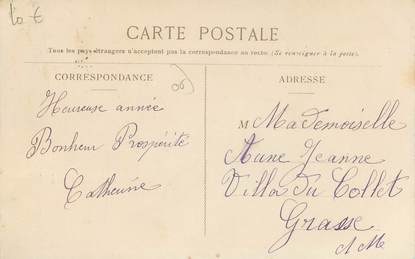 10 €
CARTE POSTALE
Tous les pays étrangers n'acceptent pas la correspondance au recto. (Se renseigner à la poste).
CORRESPONDANCE
ADRESSE
Heureuse année
Bonheur Prospérité
Catherine
M Mademoiselle
Jeanne
Villa du Collet
Grasse
A M